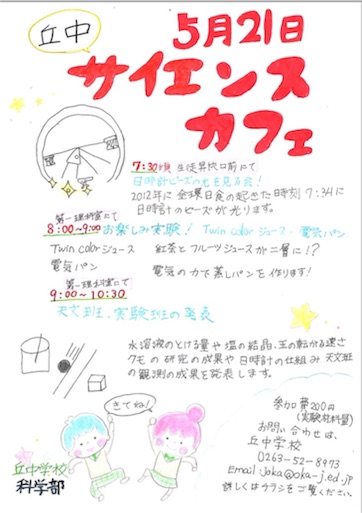 丘中
5月21日
サイエンス
カフェ
7:30頃 生徒昇降口前にて
日時計ビーズの光を見る会!
2012年に金環日食の起きた時刻 7:34に
日時計のビーズが光ります。
第一理科室にて
8:00~9:00 お楽しみ実験! Twin colorジュース・電気パン
Twin colorジュース 紅茶とフルーツジュースが二層に!?
電気パン 電気の力で蒸しパンを作ります!
第一理科室にて
9:00~10:30
天文班、実験班の発表
水溶液のとける量や塩の結晶、玉の転がる速さ
クモの研究の成果や日時計の仕組み 天文班
の観測の成果を発表します。
きてね!
丘中学校
科学部
参加費200円
(実験材料量)
お問い合わせは、
丘中学校
0263-52-8973
Email:joka@oka-j.ed.jp
詳しくはチラシをご覧ください。